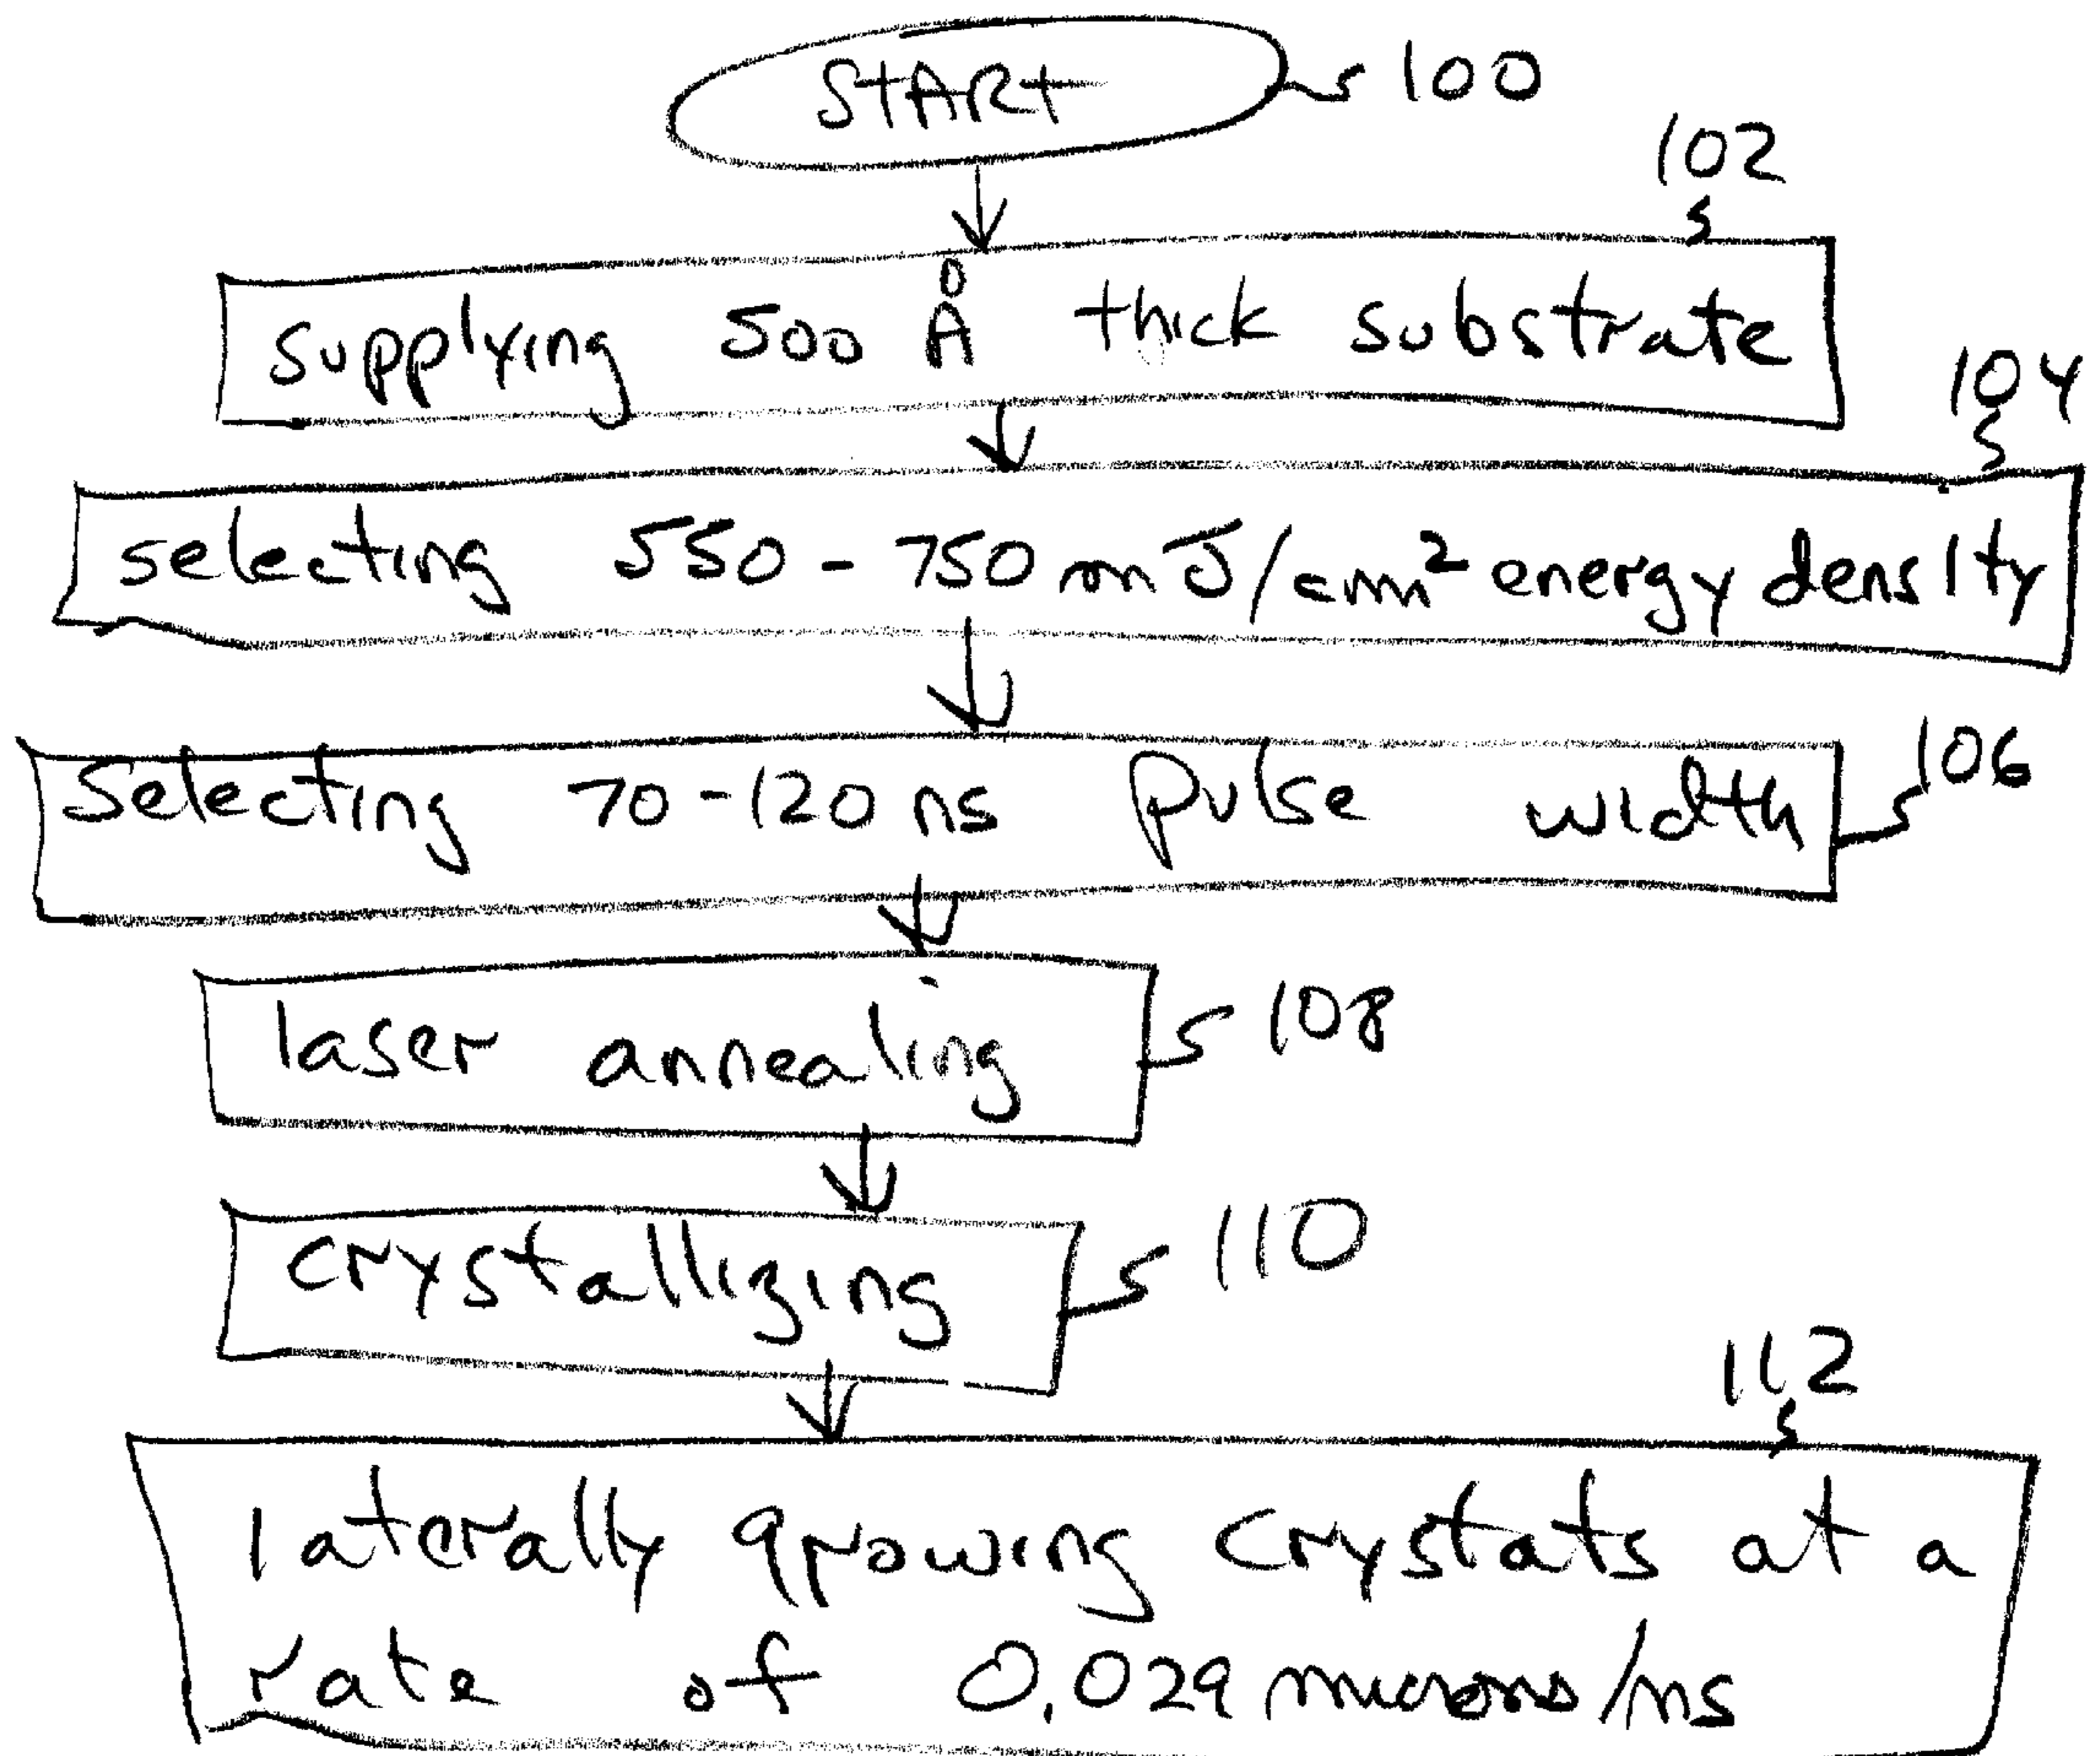 START 100
102
supplying 500 Å thick substrate
104
selecting 550-750 mJ/cm² energy density
Selecting 70-120 ns pulse width 106
laser annealing 108
crystallizing 110
112
laterally growing crystals at a
rate of 0.029 microns/ns